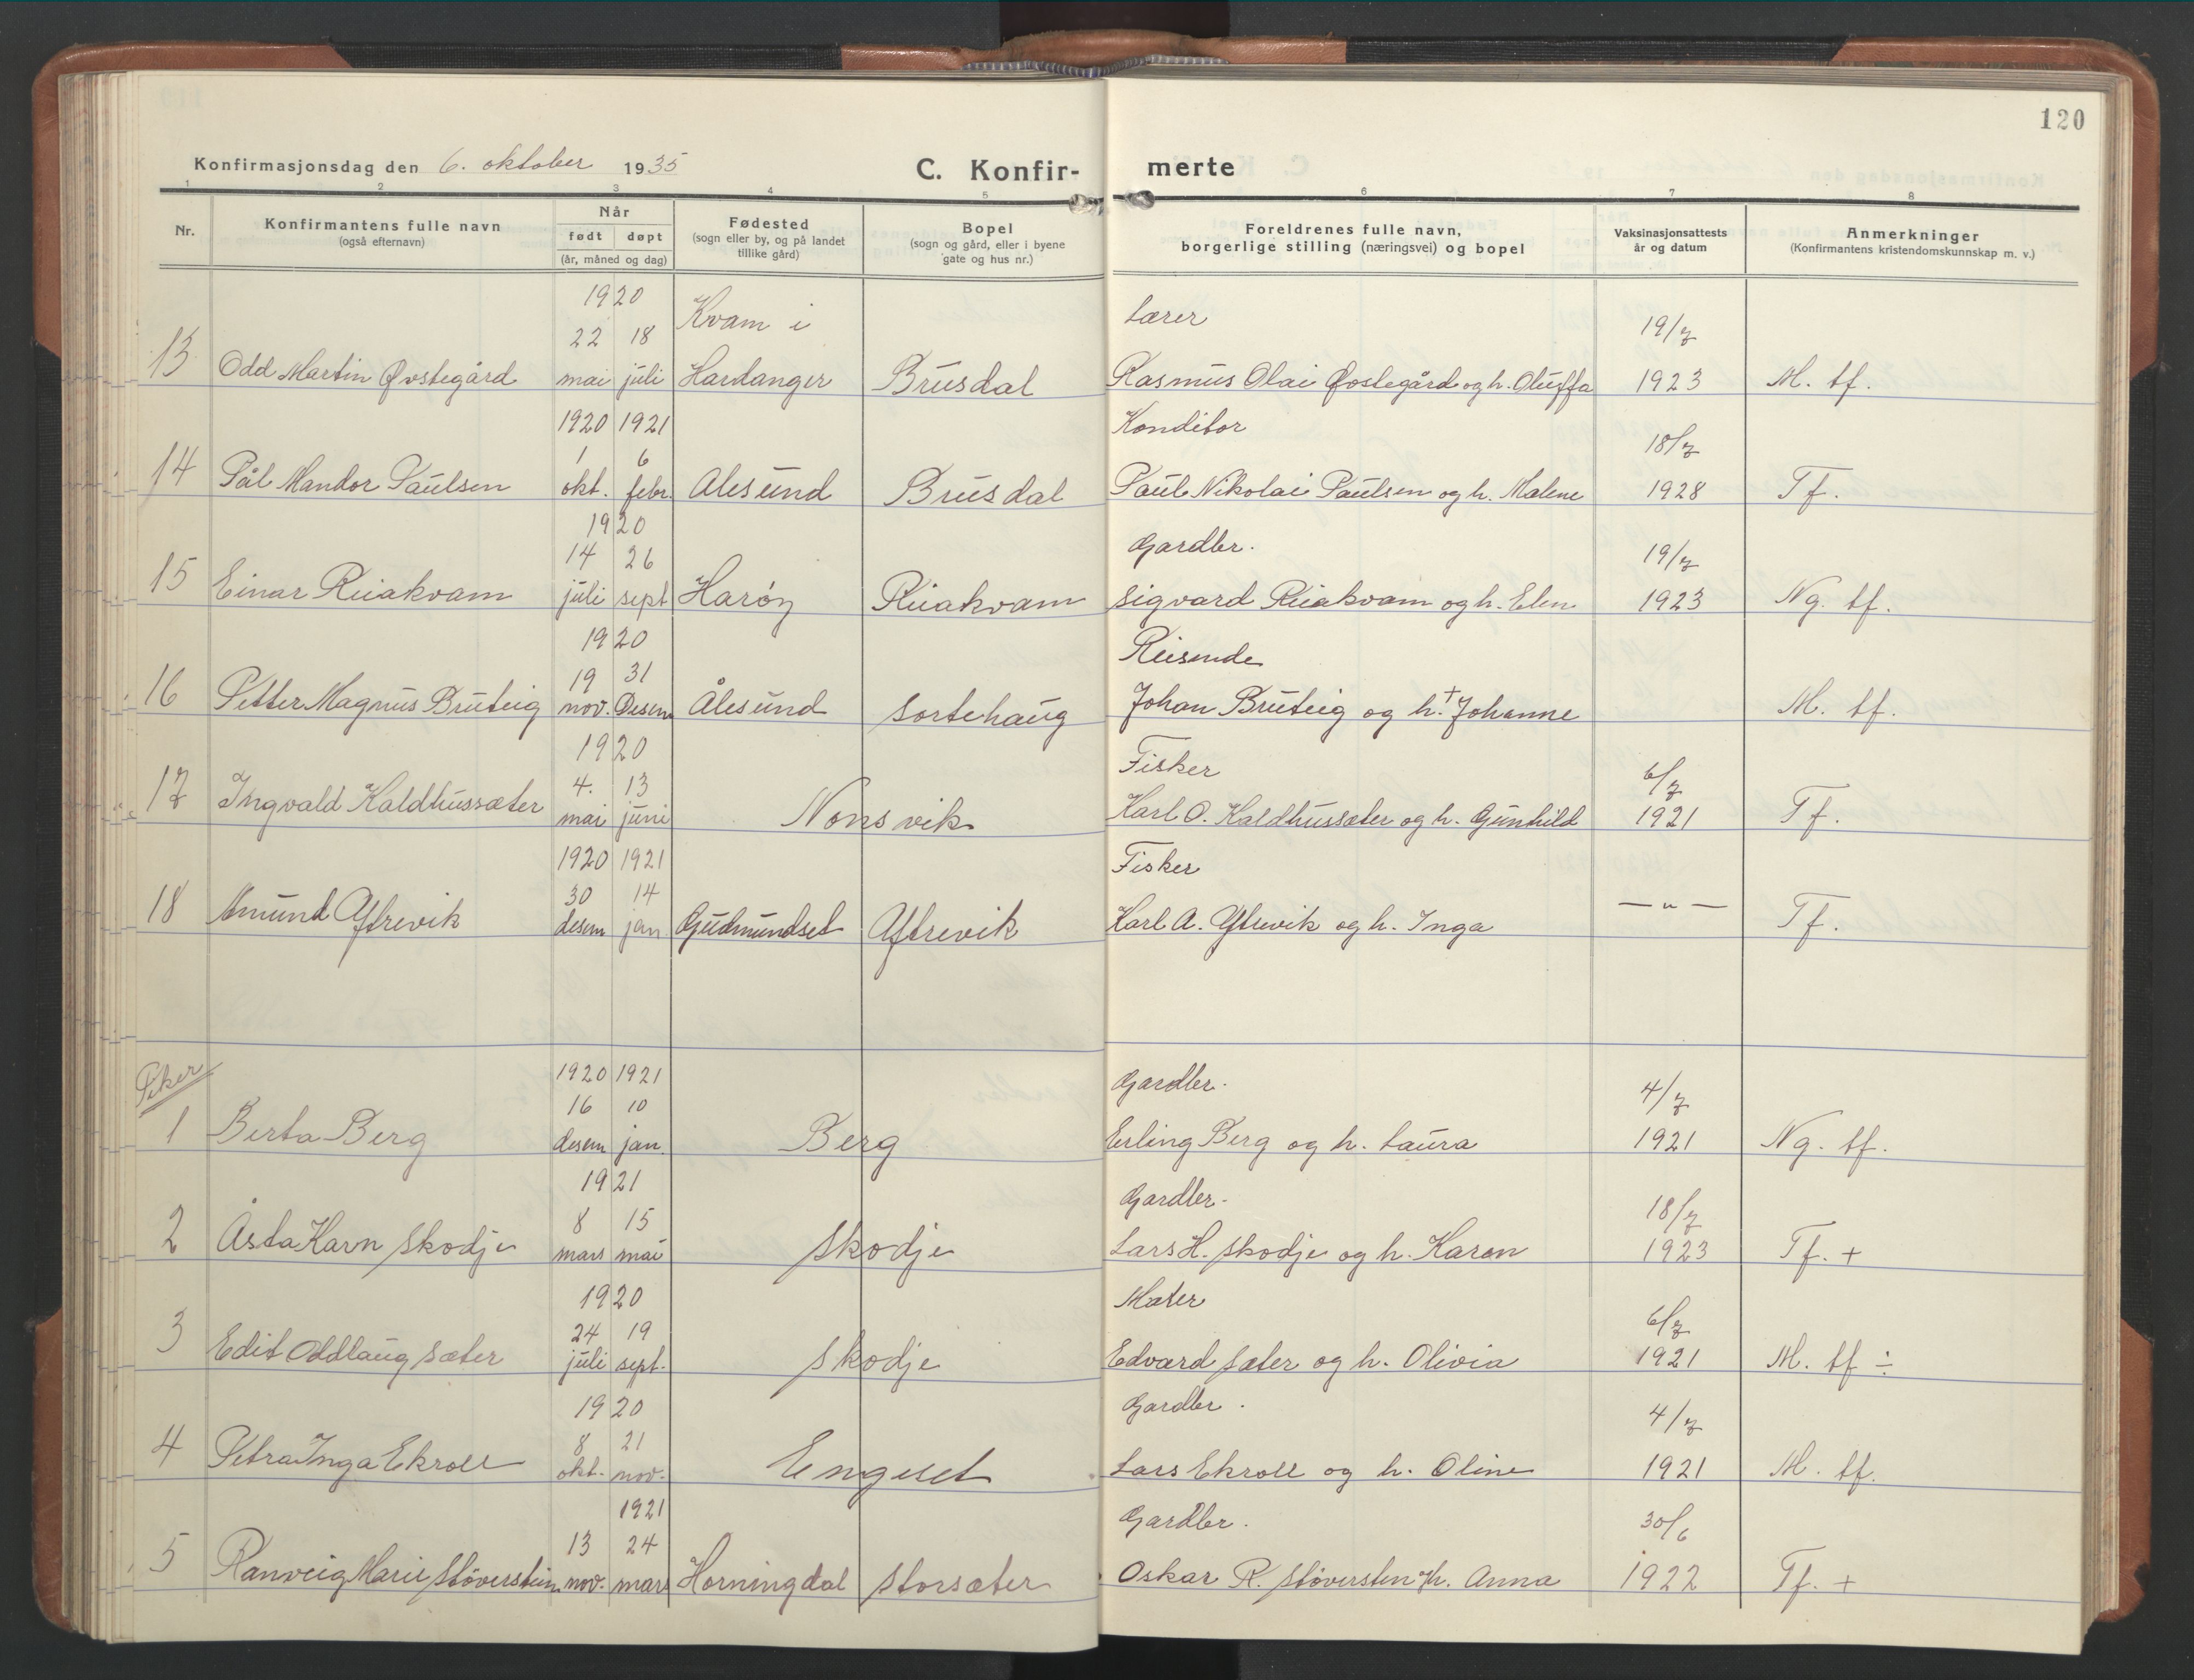 120
Konfirmasjonsdag den 6. oktober 1935
C. Konfir-merte
1 2 3 4 5 6 7 8
Nr.
Konfirmantens fulle navn
(også efternavn)
Når
født døpt
(år, måned og dag)
Fødested
(sogn eller by, og på landet
tillike gård)
Bopel
(sogn og gård, eller i byene
gate og hus nr.)
Foreldrenes fulle navn,
borgerlige stilling (næringsvei) og bopel
Vaksinasjonsattests
år og datum
Anmerkninger
(Konfirmantens kristendomskunnskap m. v.)
1920 Kvam i Lærer
22 18 19/7
13 Odd Martin Øvstegård mai juli Hardanger Brusdal Rasmus Olai Øvstegård og h. Oluffa 1923 M. tf.
1920 1921 Konditor
1 6 18/7
14 Pål Mandor Paulsen okt. febr. Ålesund Brusdal Paul Nikolai Paulsen og h. Malene 1928 Tf.
1920 Gardbr.
14 26 19/7
15 Einar Ruakvam juli sept Harøy Ruakvam Sigvard Ruakvam og h. Elen 1923 Ng. tf.
1920 Reisende
19 31
16 Petter Magnus Bruteig nov. Desem Ålesund Sortehaug Johan Bruteig og h.+ Johanne M. tf.
1920 Fisker
4. 13 6/7
17 Ingvald Kaldhussæter mai juni Nonsvik Karl O. Kaldhussæter og h. Gunhild 1921 Tf.
1920 1921 Fisker
30 14
18 Amund Ytrevik desem jan. Gudmundset Ytrevik Karl A. Ytrevik og h. Inga — " — Tf.
Piker
1920 1921 Gardbr.
16 10 4/7
1 Berta Berg desem jan. Berg Erling Berg og h. Laura 1921 Ng. tf.
1921 Gardbr.
8 15 18/7
2 Åsta Karn Skodje mars mai Skodje Lars H. Skodje og h. Karen 1923 Tf. +
1920 Maler
24 19 6/7
3 Edit Oddlaug Sæter juli sept. Skodje Edvard Sæter og h. Olivia 1921 M. tf ÷
1920 Gardbr.
8 21 4/7
4 Petra Inga Ekroll okt. nov. Engeset Lars Ekroll og h. Oline 1921 M. tf.
1921 Gardbr.
13 24 30/6
5 Ranveig Marie Støverstein nov. mars Horningdal Storsæter Oskar R. Støversten og h. Anna 1922 Tf. +